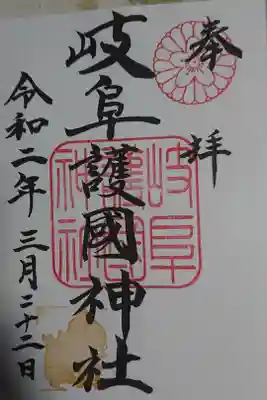 奉拝
岐阜護國神社
岐阜護國神社
令和二年三月二十二日